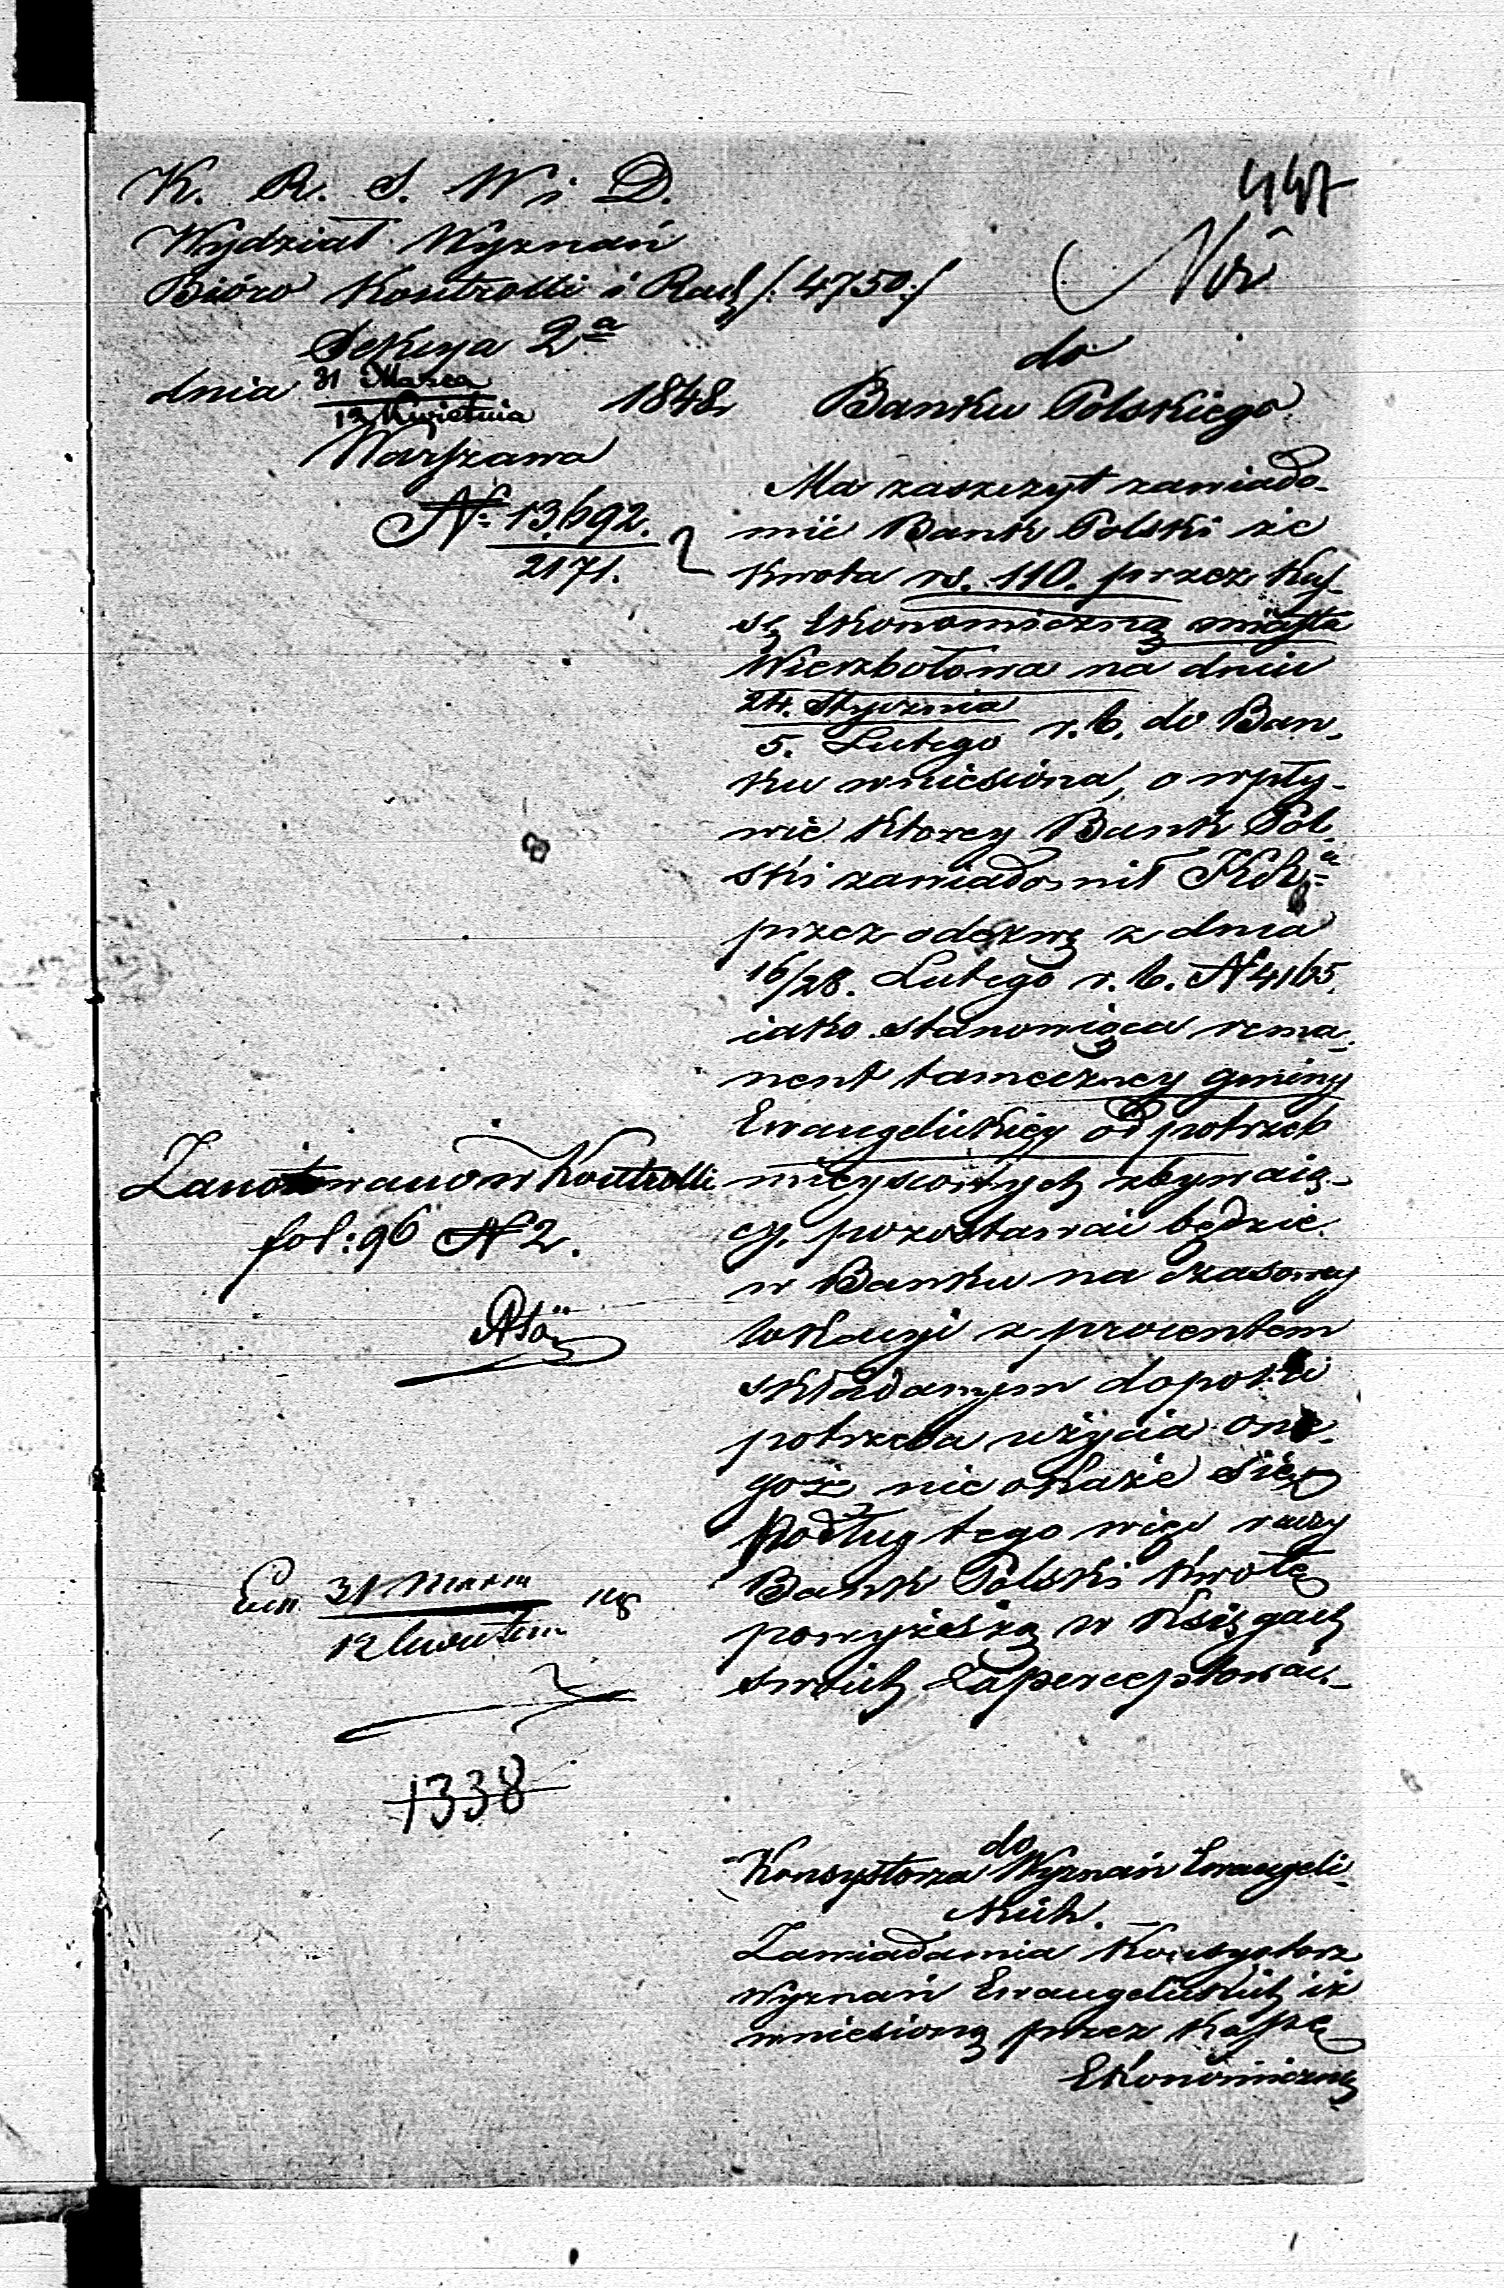 K. R. S. W i D.
Wydział Wyznań
Bióro Kontrolli i Rach /: 4750 :/
Sekcya 2a
dnia 31 Marca
12 Kwietnia 1848
Warszawa
No 13,692.
2171.
447
do
Banku Polskiego
Ma zaszczyt zawiado-
mić Bank Polski że
kwota rs. 110. przez Kas-
sę Ekonomiczną miasta
Wierzbołowa na dniu
24. Stycznia
5. Lutego r. b. do Ban-
ku wniesiona, o wpły-
wie ktorey Bank Pol-
ski zawiadomił
przez odezwę z dnia
16/28. Lutego r. b. N 4165.
iako stanowiąca rema-
nent tameczney gminy
Ewangelickiey od potrzeb
mieyscowych zbywaią-
cy, pozostawać będzie
w Banku na czasowey
lokacyi z procentem
składanym dopoki
potrzeba użycia one-
goż nie okaże się
podług tego więc raczy
Bank Polski kwotę
powyższą w księgach
swoich zapercepтować.
Zanotowano w Kontrolli
fol: 96 N 2.
31 Marca
12 Kwietnia
1338
do
Konsystorza Wyznań Ewangeli-
ckich.
Zawiadamia Konsystorz
Wyznań Ewangelickich iż
wniesioną przez Kassę
Ekonomiczną